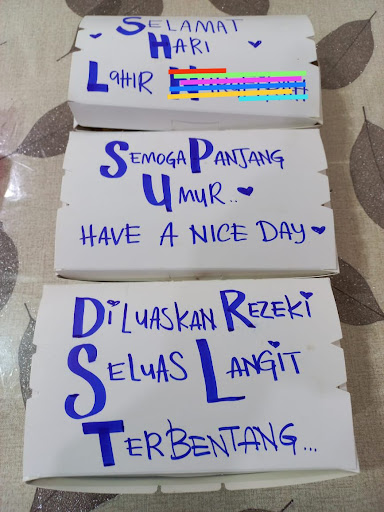 SELAMAT
HARI
LAHIR
SEMOGA PANJANG
UMUR..
HAVE A NICE DAY
DILUASKAN REZEKI
SELUAS LANGIT
TERBENTANG...